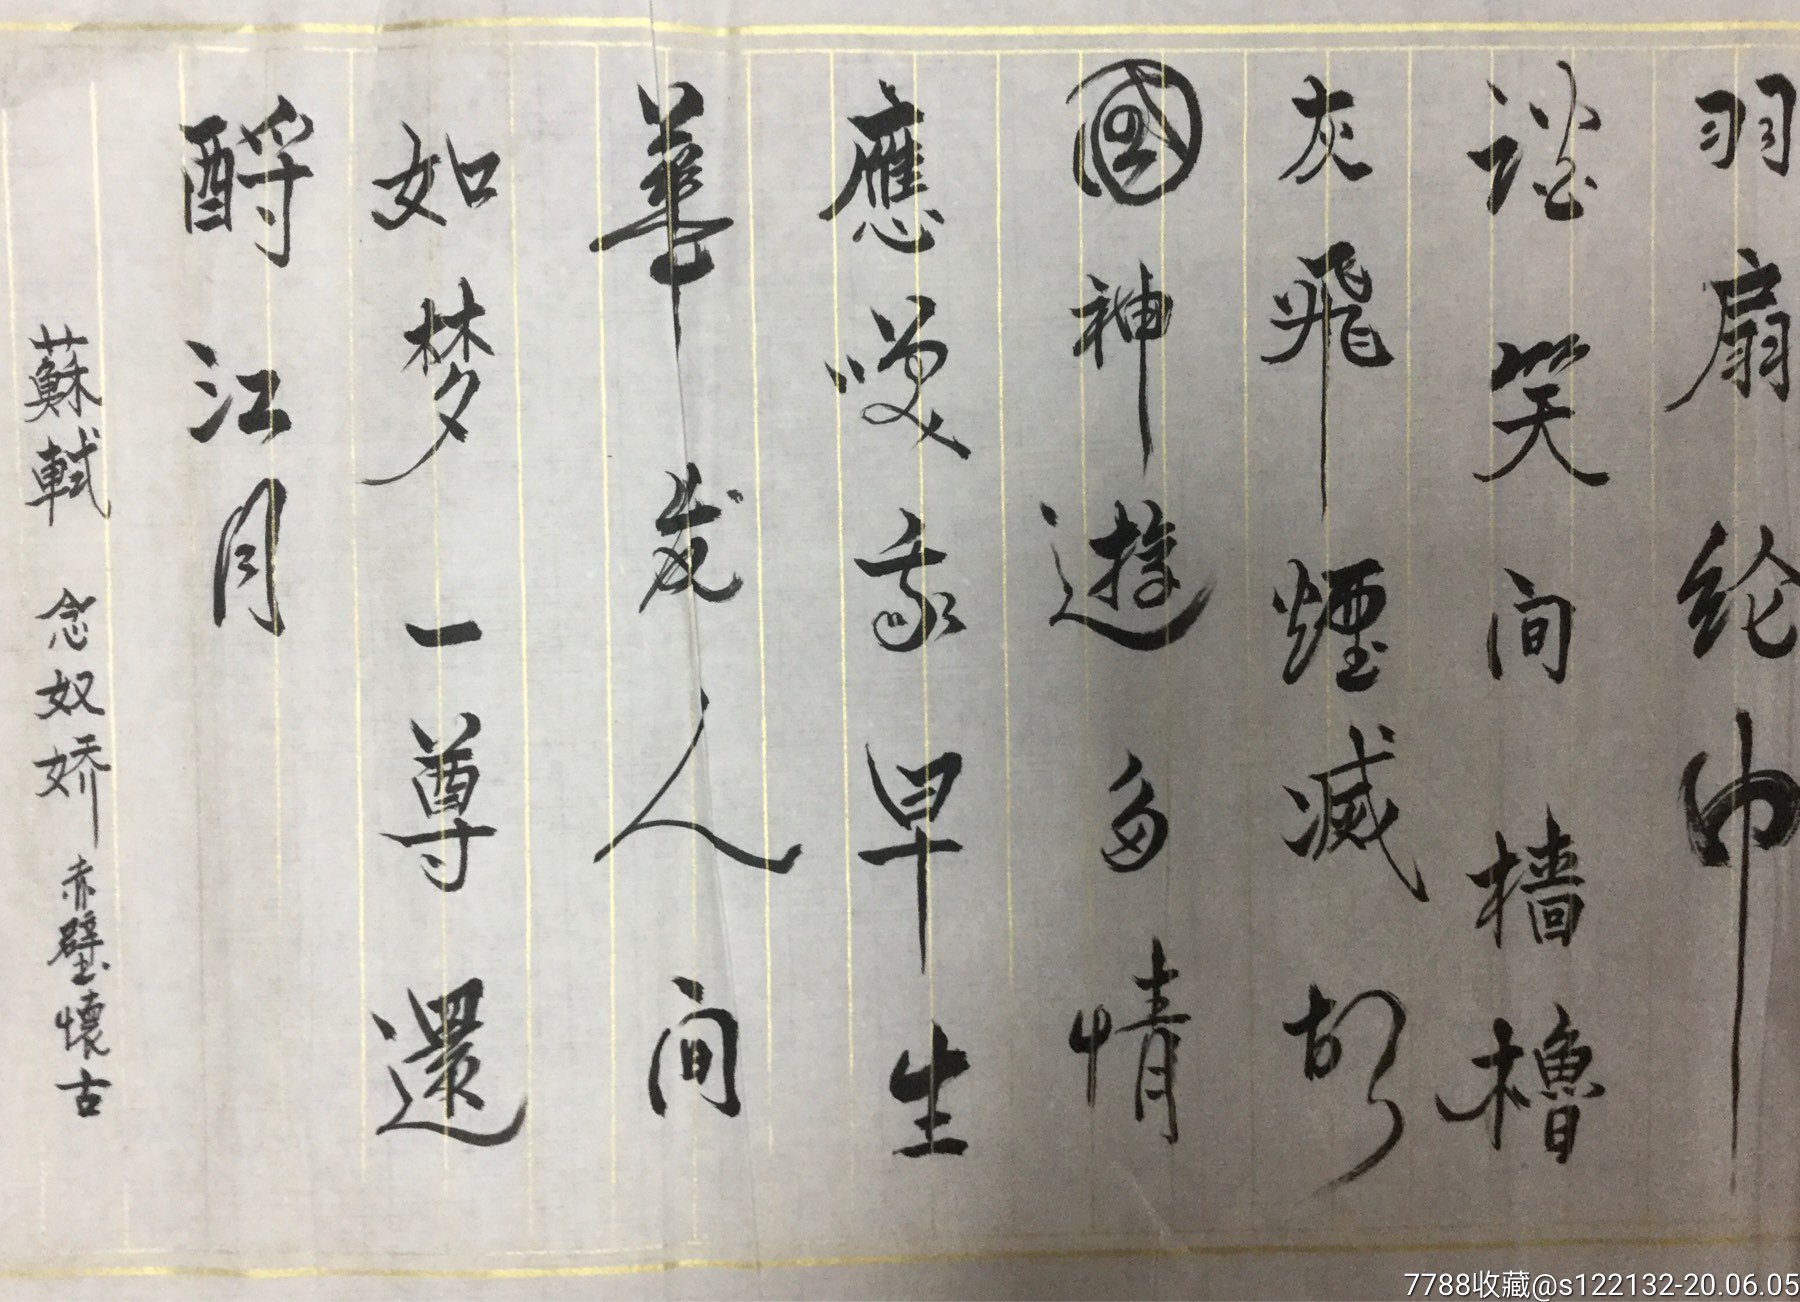 羽扇纶巾
谈笑间樯櫓
灰飛煙滅故
國神遊多情
應笑我早生
華发人间
如梦一尊還
酹江月
蘇軾 念奴娇 赤壁懷古
7788收藏@s122132-20.06.05